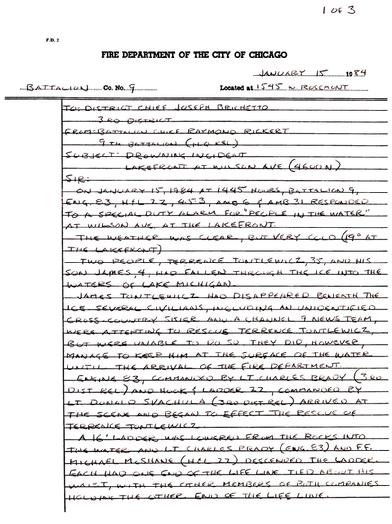 1 OF 3
F.D. 2
FIRE DEPARTMENT OF THE CITY OF CHICAGO
JANUARY 15 1984
BATTALION Co. No. 9 Located at 1545 W ROSEMONT
TO: DISTRICT CHIEF JOSEPH BRICHETTO
3RD DISTRICT
FROM: BATTALION CHIEF RAYMOND RICKERT
9TH BATTALION
SUBJECT: DROWNING INCIDENT
LAKEFRONT AT WILSON AVE (4600N)
SIR:
ON JANUARY 15, 1984 AT 1445 HOURS, BATTALION 9,
ENG. 83, H&L 22, 453, AMB 6 & AMB 31 RESPONDED
TO A SPECIAL DUTY ALARM FOR "PEOPLE IN THE WATER"
AT WILSON AVE. AT THE LAKEFRONT.
THE WEATHER WAS CLEAR, BUT VERY COLD (19° AT
THE LAKEFRONT)
TWO PEOPLE, TERRENCE TONTLEWICZ, 35, AND HIS
SON JAMES, 4, HAD FALLEN THROUGH THE ICE INTO THE
WATERS OF LAKE MICHIGAN.
JAMES TONTLEWICZ HAD DISAPPEARED BENEATH THE
ICE. SEVERAL CIVILIANS, INCLUDING AN UNIDENTIFIED
CROSS-COUNTRY SKIER AND A CHANNEL 9 NEWS TEAM,
WERE ATTEMPTING TO RESCUE TERRENCE TONTLEWICZ,
BUT WERE UNABLE TO DO SO. THEY DID, HOWEVER,
MANAGE TO KEEP HIM AT THE SURFACE OF THE WATER
UNTIL THE ARRIVAL OF THE FIRE DEPARTMENT.
ENGINE 83, COMMANDED BY LT CHARLES BRADY (3RD
DIST REL) AND HOOK & LADDER 22, COMMANDED BY
LT DONALD SVACHULA (3RD DIST. REL) ARRIVED AT
THE SCENE AND BEGAN TO EFFECT THE RESCUE OF
TERRENCE TONTLEWICZ.
A 16' LADDER WAS LOWERED FROM THE ROCKS INTO
THE WATER AND LT CHARLES BRADY (ENG. 83) AND F.F.
MICHAEL McSHANE (H&L 22) DESCENDED THE LADDER.
EACH HAD ONE END OF THE LIFE LINE TIED ABOUT HIS
WAIST, WITH THE OTHER MEMBERS OF BOTH COMPANIES
HOLDING THE OTHER END OF THE LIFE LINE.